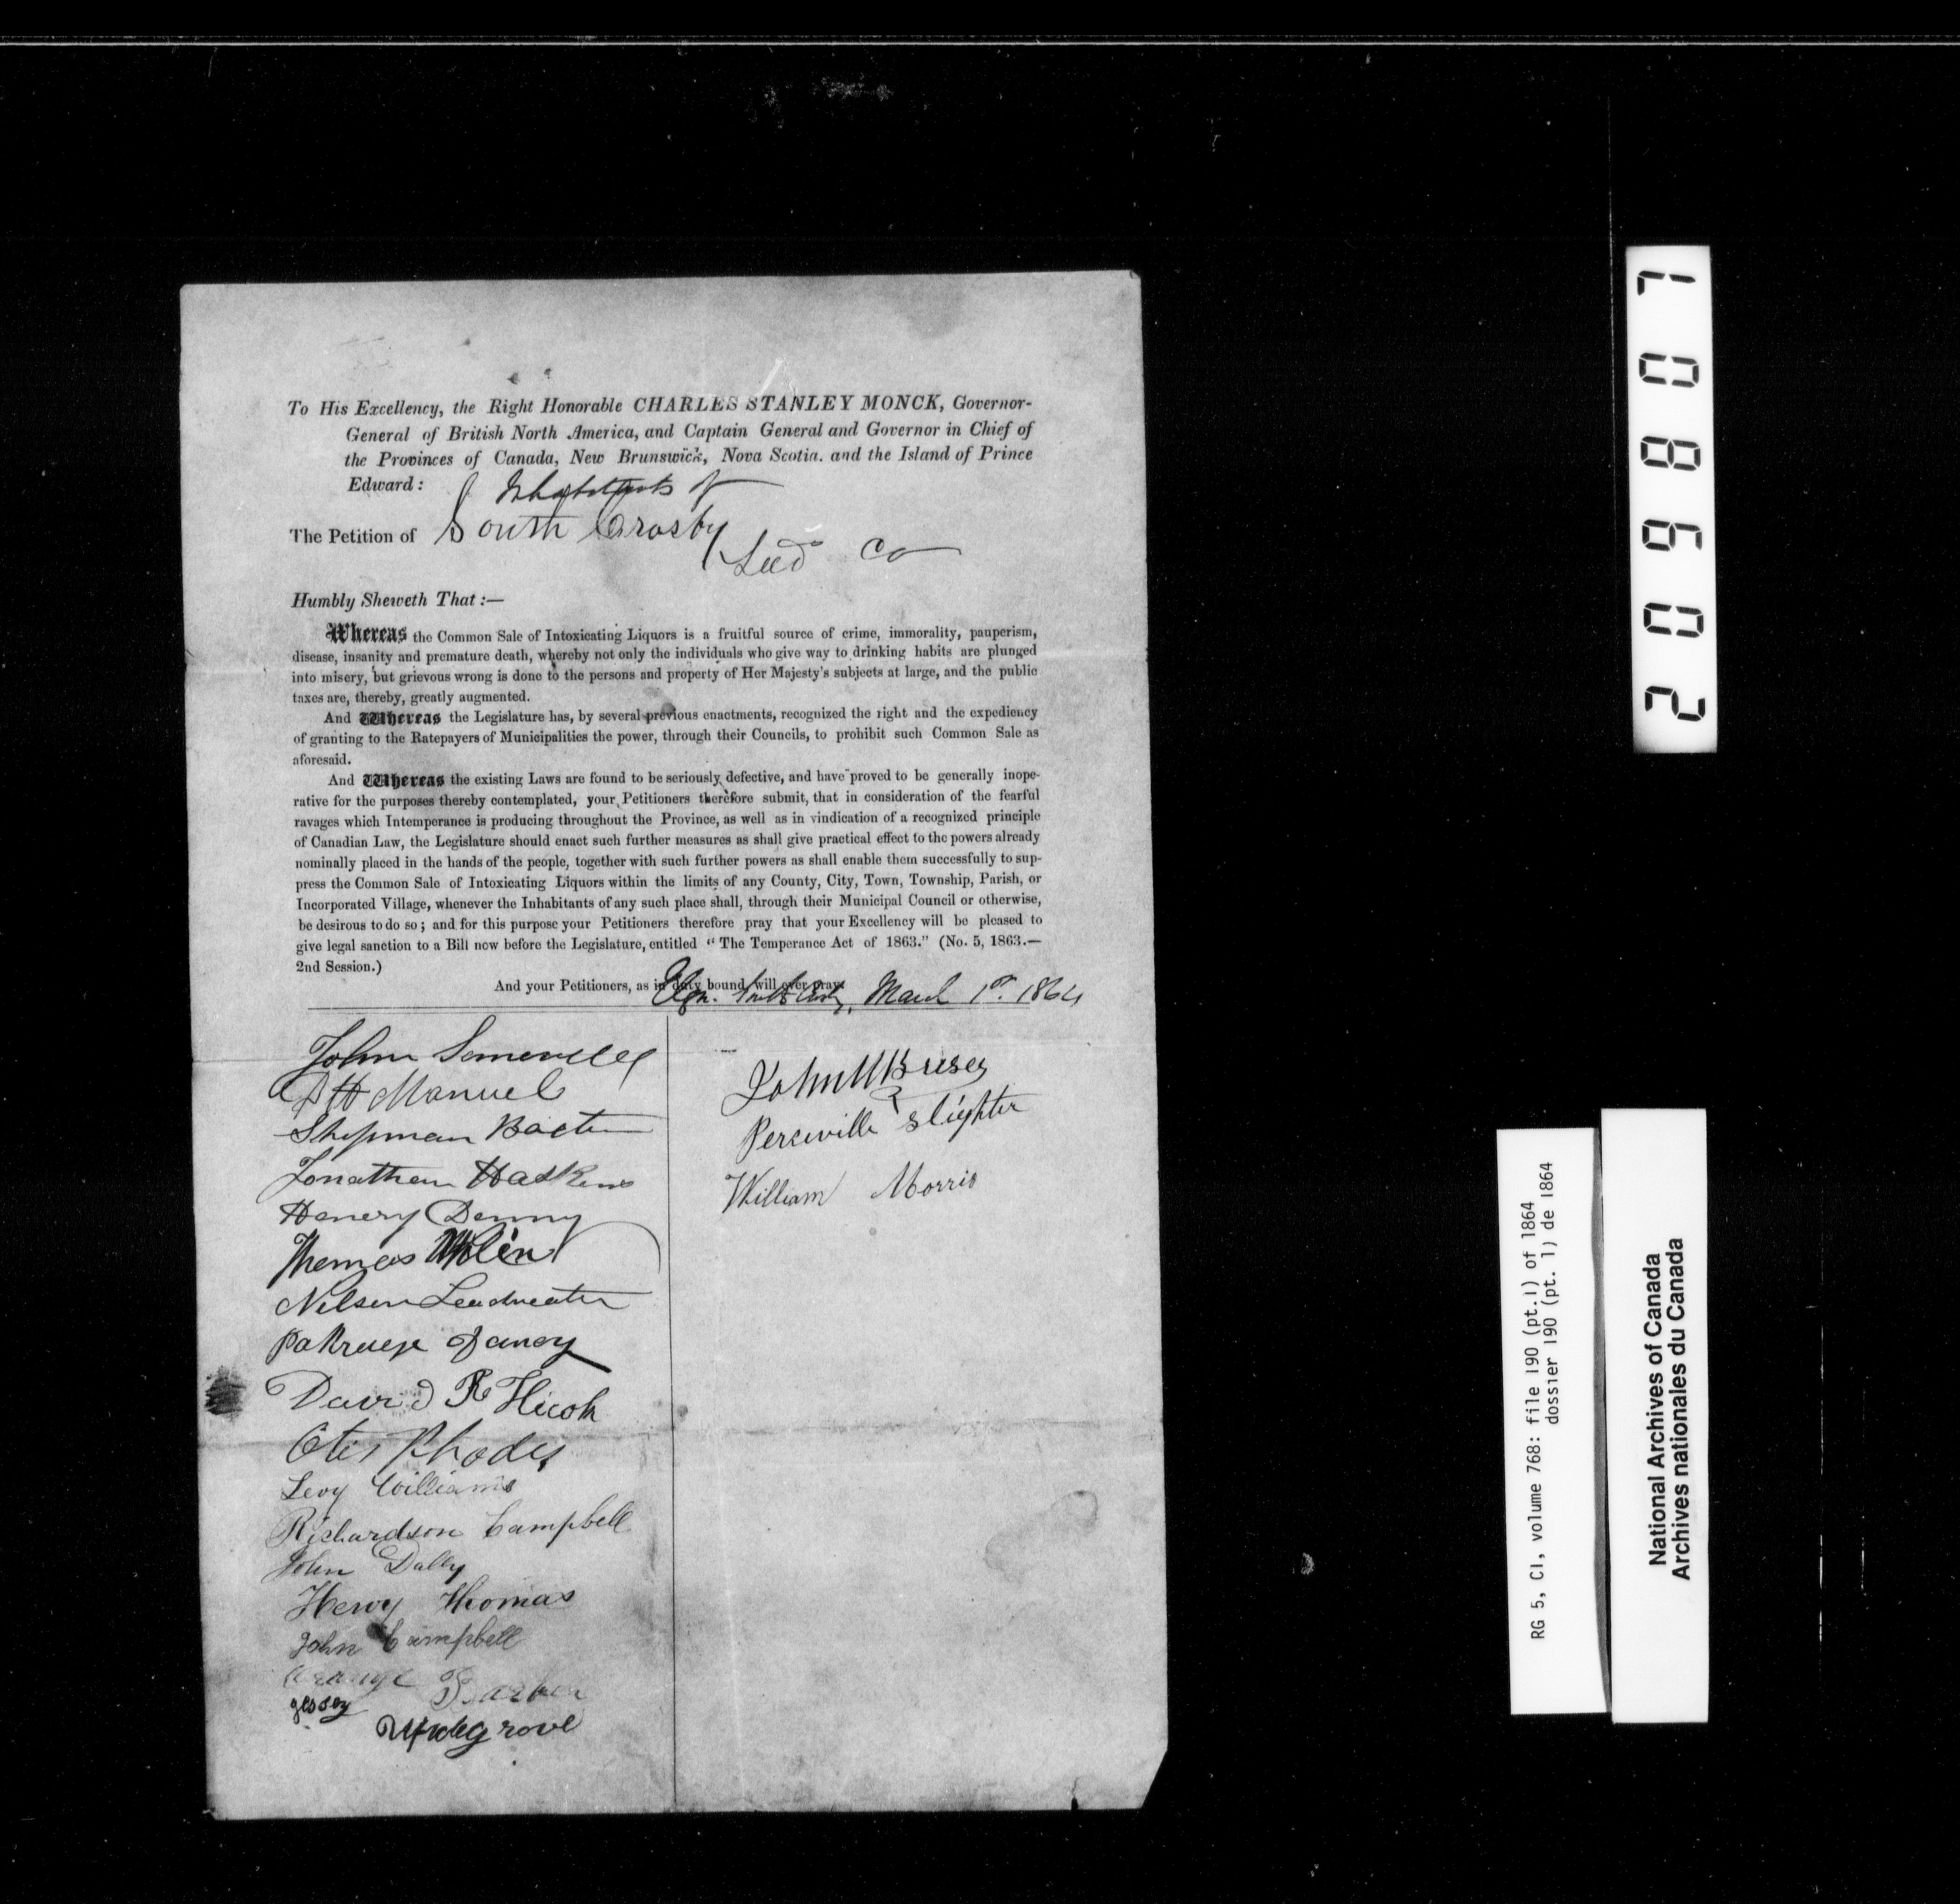 To His Excellency, the Right Honorable CHARLES STANLEY MONCK, Governor-
General of British North America, and Captain General and Governor in Chief of
the Provinces of Canada, New Brunswick, Nova Scotia. and the Island of Prince
Edward:
Inhabitants of
The Petition of South Crosby
Leeds Co
Humbly Sheweth That :—
Whereas the Common Sale of Intoxicating Liquors is a fruitful source of crime, immorality, pauperism,
disease, insanity and premature death, whereby not only the individuals who give way to drinking habits are plunged
into misery, but grievous wrong is done to the persons and property of Her Majesty's subjects at large, and the public
taxes are, thereby, greatly augmented.
And Whereas the Legislature has, by several previous enactments, recognized the right and the expediency
of granting to the Ratepayers of Municipalities the power, through their Councils, to prohibit such Common Sale as
aforesaid.
And Whereas the existing Laws are found to be seriously defective, and have proved to be generally inope-
rative for the purposes thereby contemplated, your Petitioners therefore submit, that in consideration of the fearful
ravages which Intemperance is producing throughout the Province, as well as in vindication of a recognized principle
of Canadian Law, the Legislature should enact such further measures as shall give practical effect to the powers already
nominally placed in the hands of the people, together with such further powers as shall enable them successfully to sup-
press the Common Sale of Intoxicating Liquors within the limits of any County, City, Town, Township, Parish, or
Incorporated Village, whenever the Inhabitants of any such place shall, through their Municipal Council or otherwise,
be desirous to do so ; and for this purpose your Petitioners therefore pray that your Excellency will be pleased to
give legal sanction to a Bill now before the Legislature, entitled “ The Temperance Act of 1863.” (No. 5, 1863.—
2nd Session.)
And your Petitioners, as in duty bound, will ever pray.
March 1st. 1864
John Somerville
Manuel
Shipman
Jonathan Haskins
Henery Denny
Thomas
Nelson Leadweater
David R
Otis Rhodes
Levy Williams
Richardson Campbell
John Dally
Henry Thomas
John Campbell
Barber
John
Slighter
William Morris
209807
RG 5, CI, volume 768: file 190 (pt.1) of 1864
dossier 190 (pt. 1) de 1864
National Archives of Canada
Archives nationales du Canada